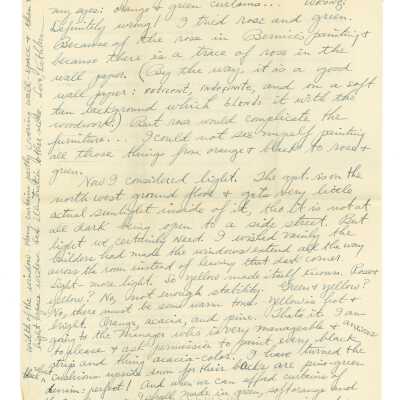 my eyes: Orange & green curtains... Wrong.
Definitely wrong! I tried rose and green.
Because of the rose in Bernice's painting &
because there is a trace of rose in the
wall paper. (By the way, it is a good
wall paper: indefinite, and on a soft
tan background which blends it with the
woodwork.) But rose would complicate the
furniture... I could not see myself painting
all those things from orange & black to rose &
green.
Now I considered light. The apt. is on the
north west ground floor & gets very little
actual sunlight inside of it, tho it is not at
all dark being open to a side street. But
light we certainly need. I wished vainly the
builders had made the windows extend all the way
across the room instead of leaving that dark corner.
Light - more light. So yellow made itself known. Rose &
yellow? No, not enough stability. Green & yellow?
No, there must be some warm tone. Yellow is hot &
bright. Orange, acacia, and pine. That's it. I am
going to the manager who is very manageable & anxious
to please & ask permission to paint every black
strip and thing acacia-color. I have turned the
cushions upside down for their backs are pine-green
denim: perfect! And when we can afford curtains of
made in green, soft orange and